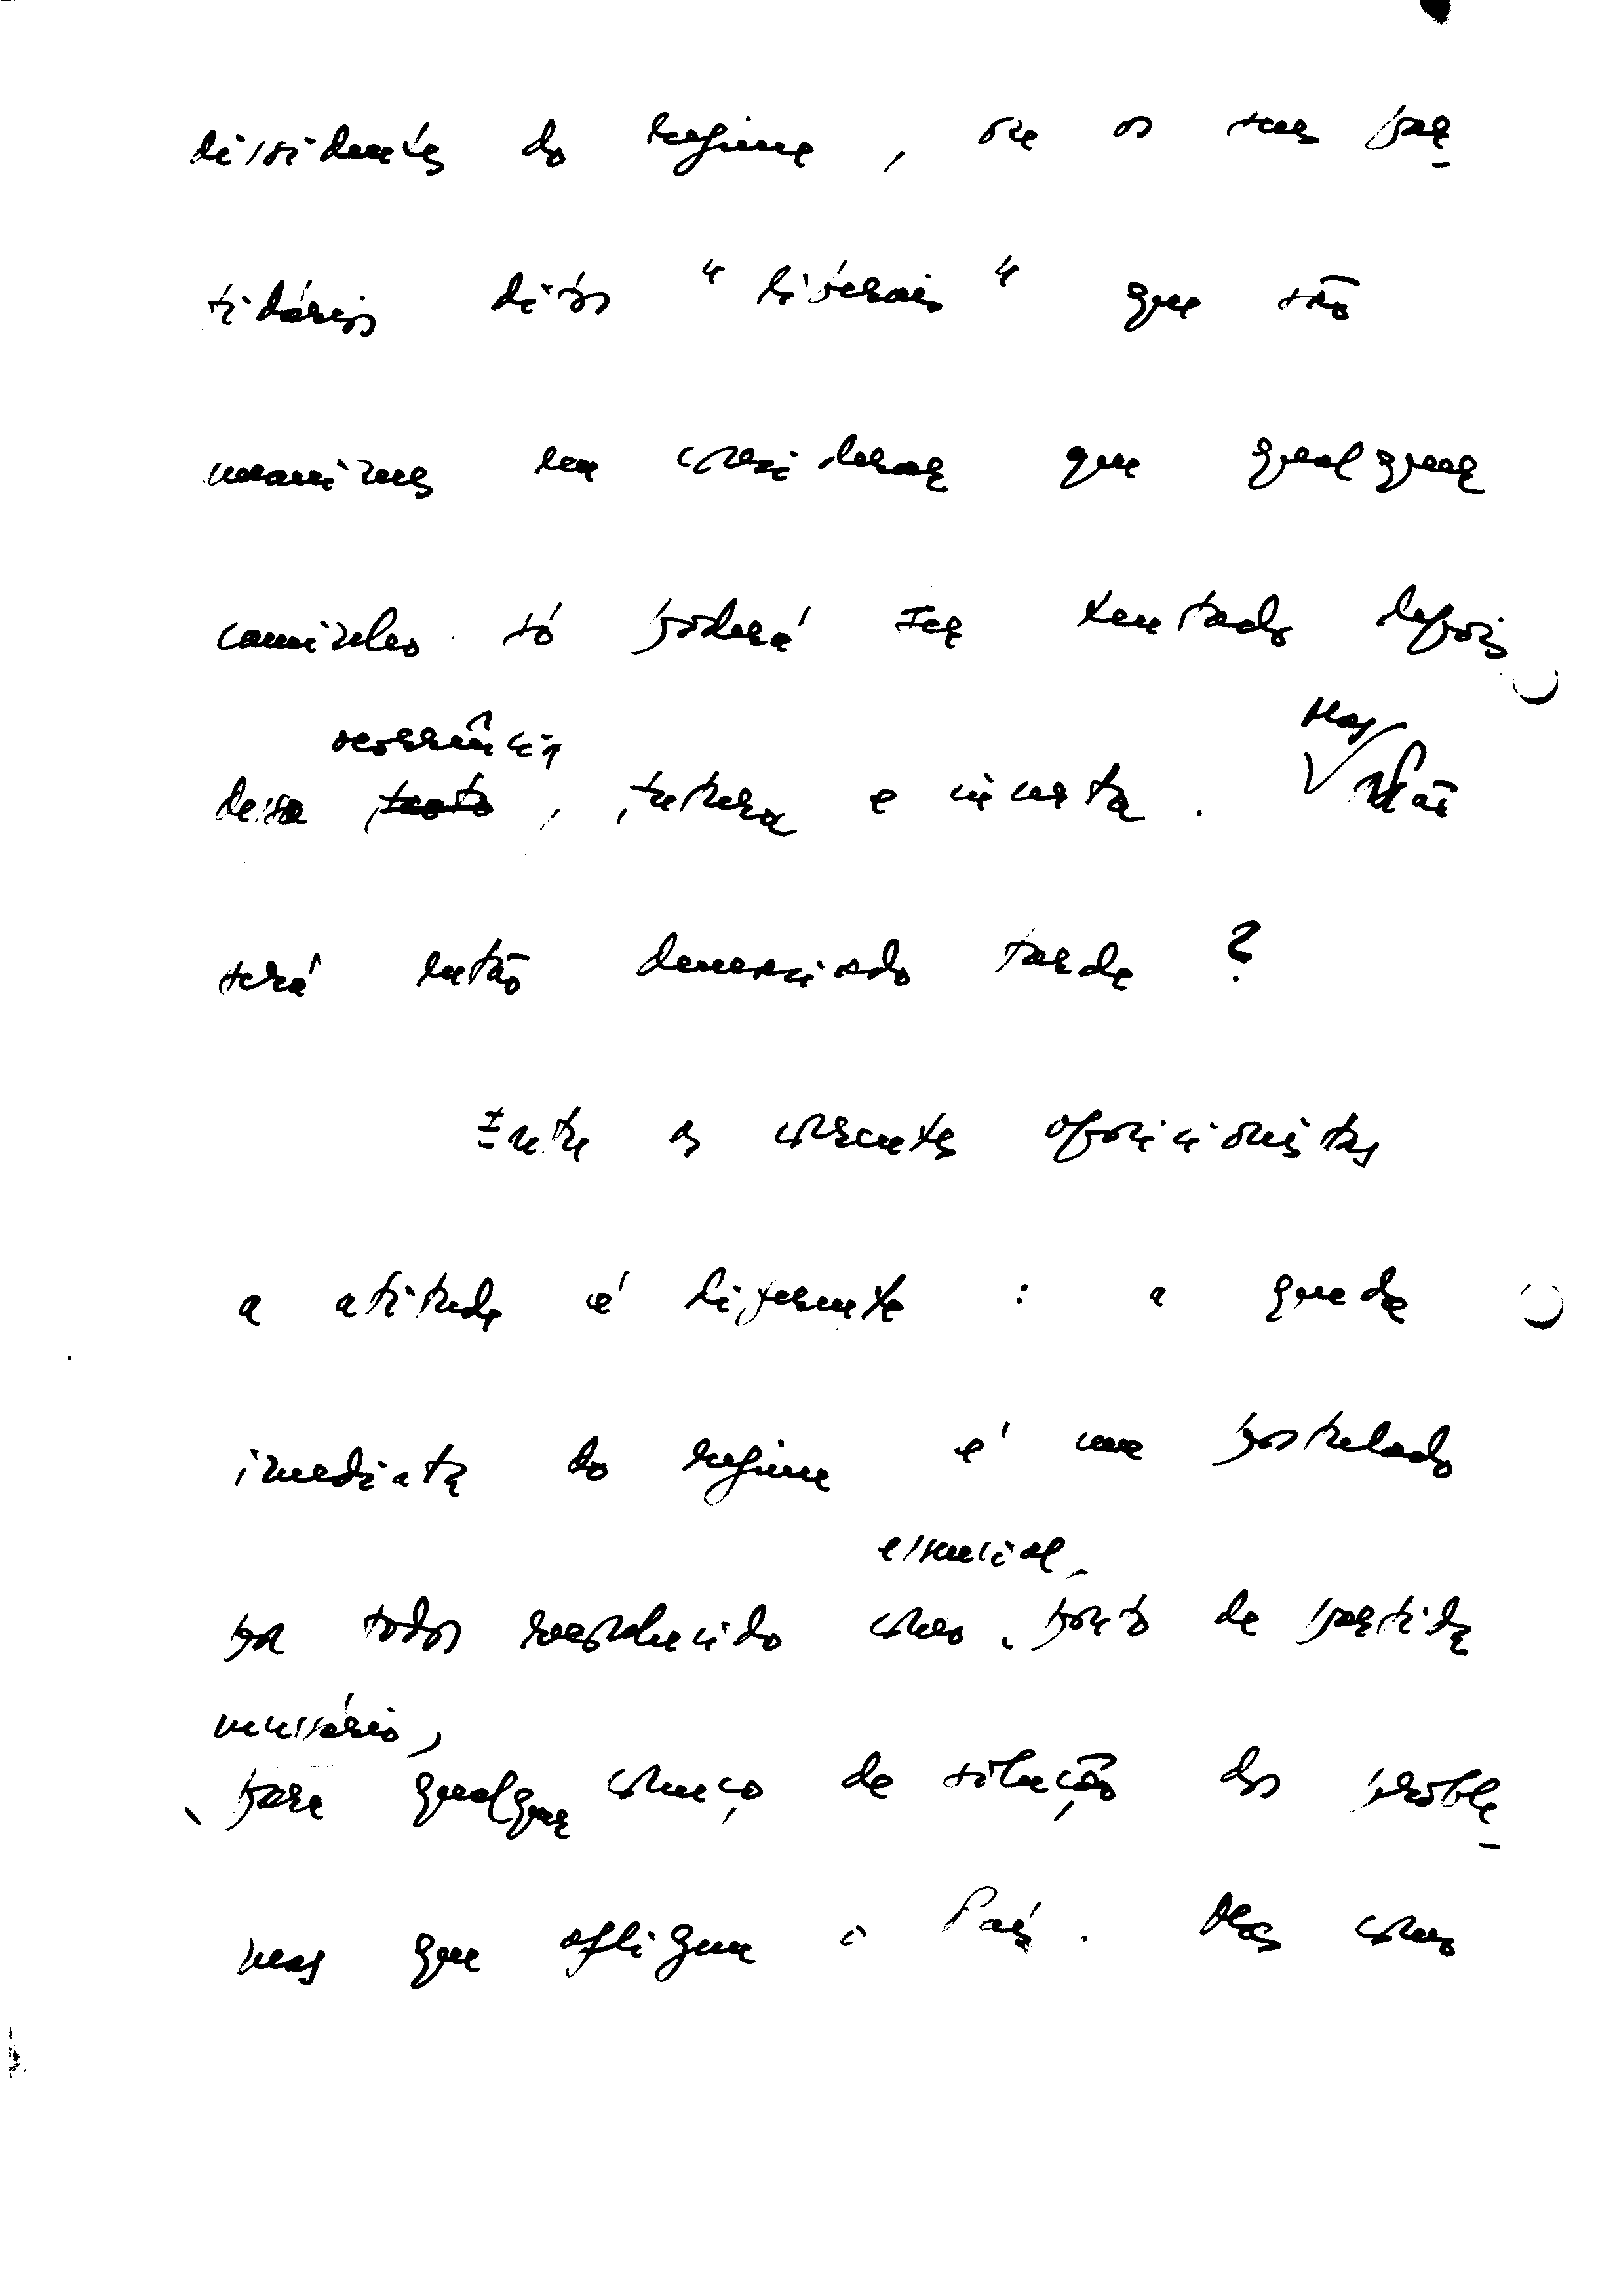 dissidentes do regime, ou os seus par-
tidários ditos "liberais" que são
unanimes em considerar que qualquer
caminho só poderá ser tentado depois
ocorrência
dessa facto, futura e incerta. Mas não
será então demasiado tarde?
Entre as correntes oposicionistas
a atitude é diferente: a queda
imediata do regime é um postulado
essencial
por todos reconhecido como ponto de partida
necessário,
para qualquer começo de solução dos proble-
mas que afligem o País. Mas como